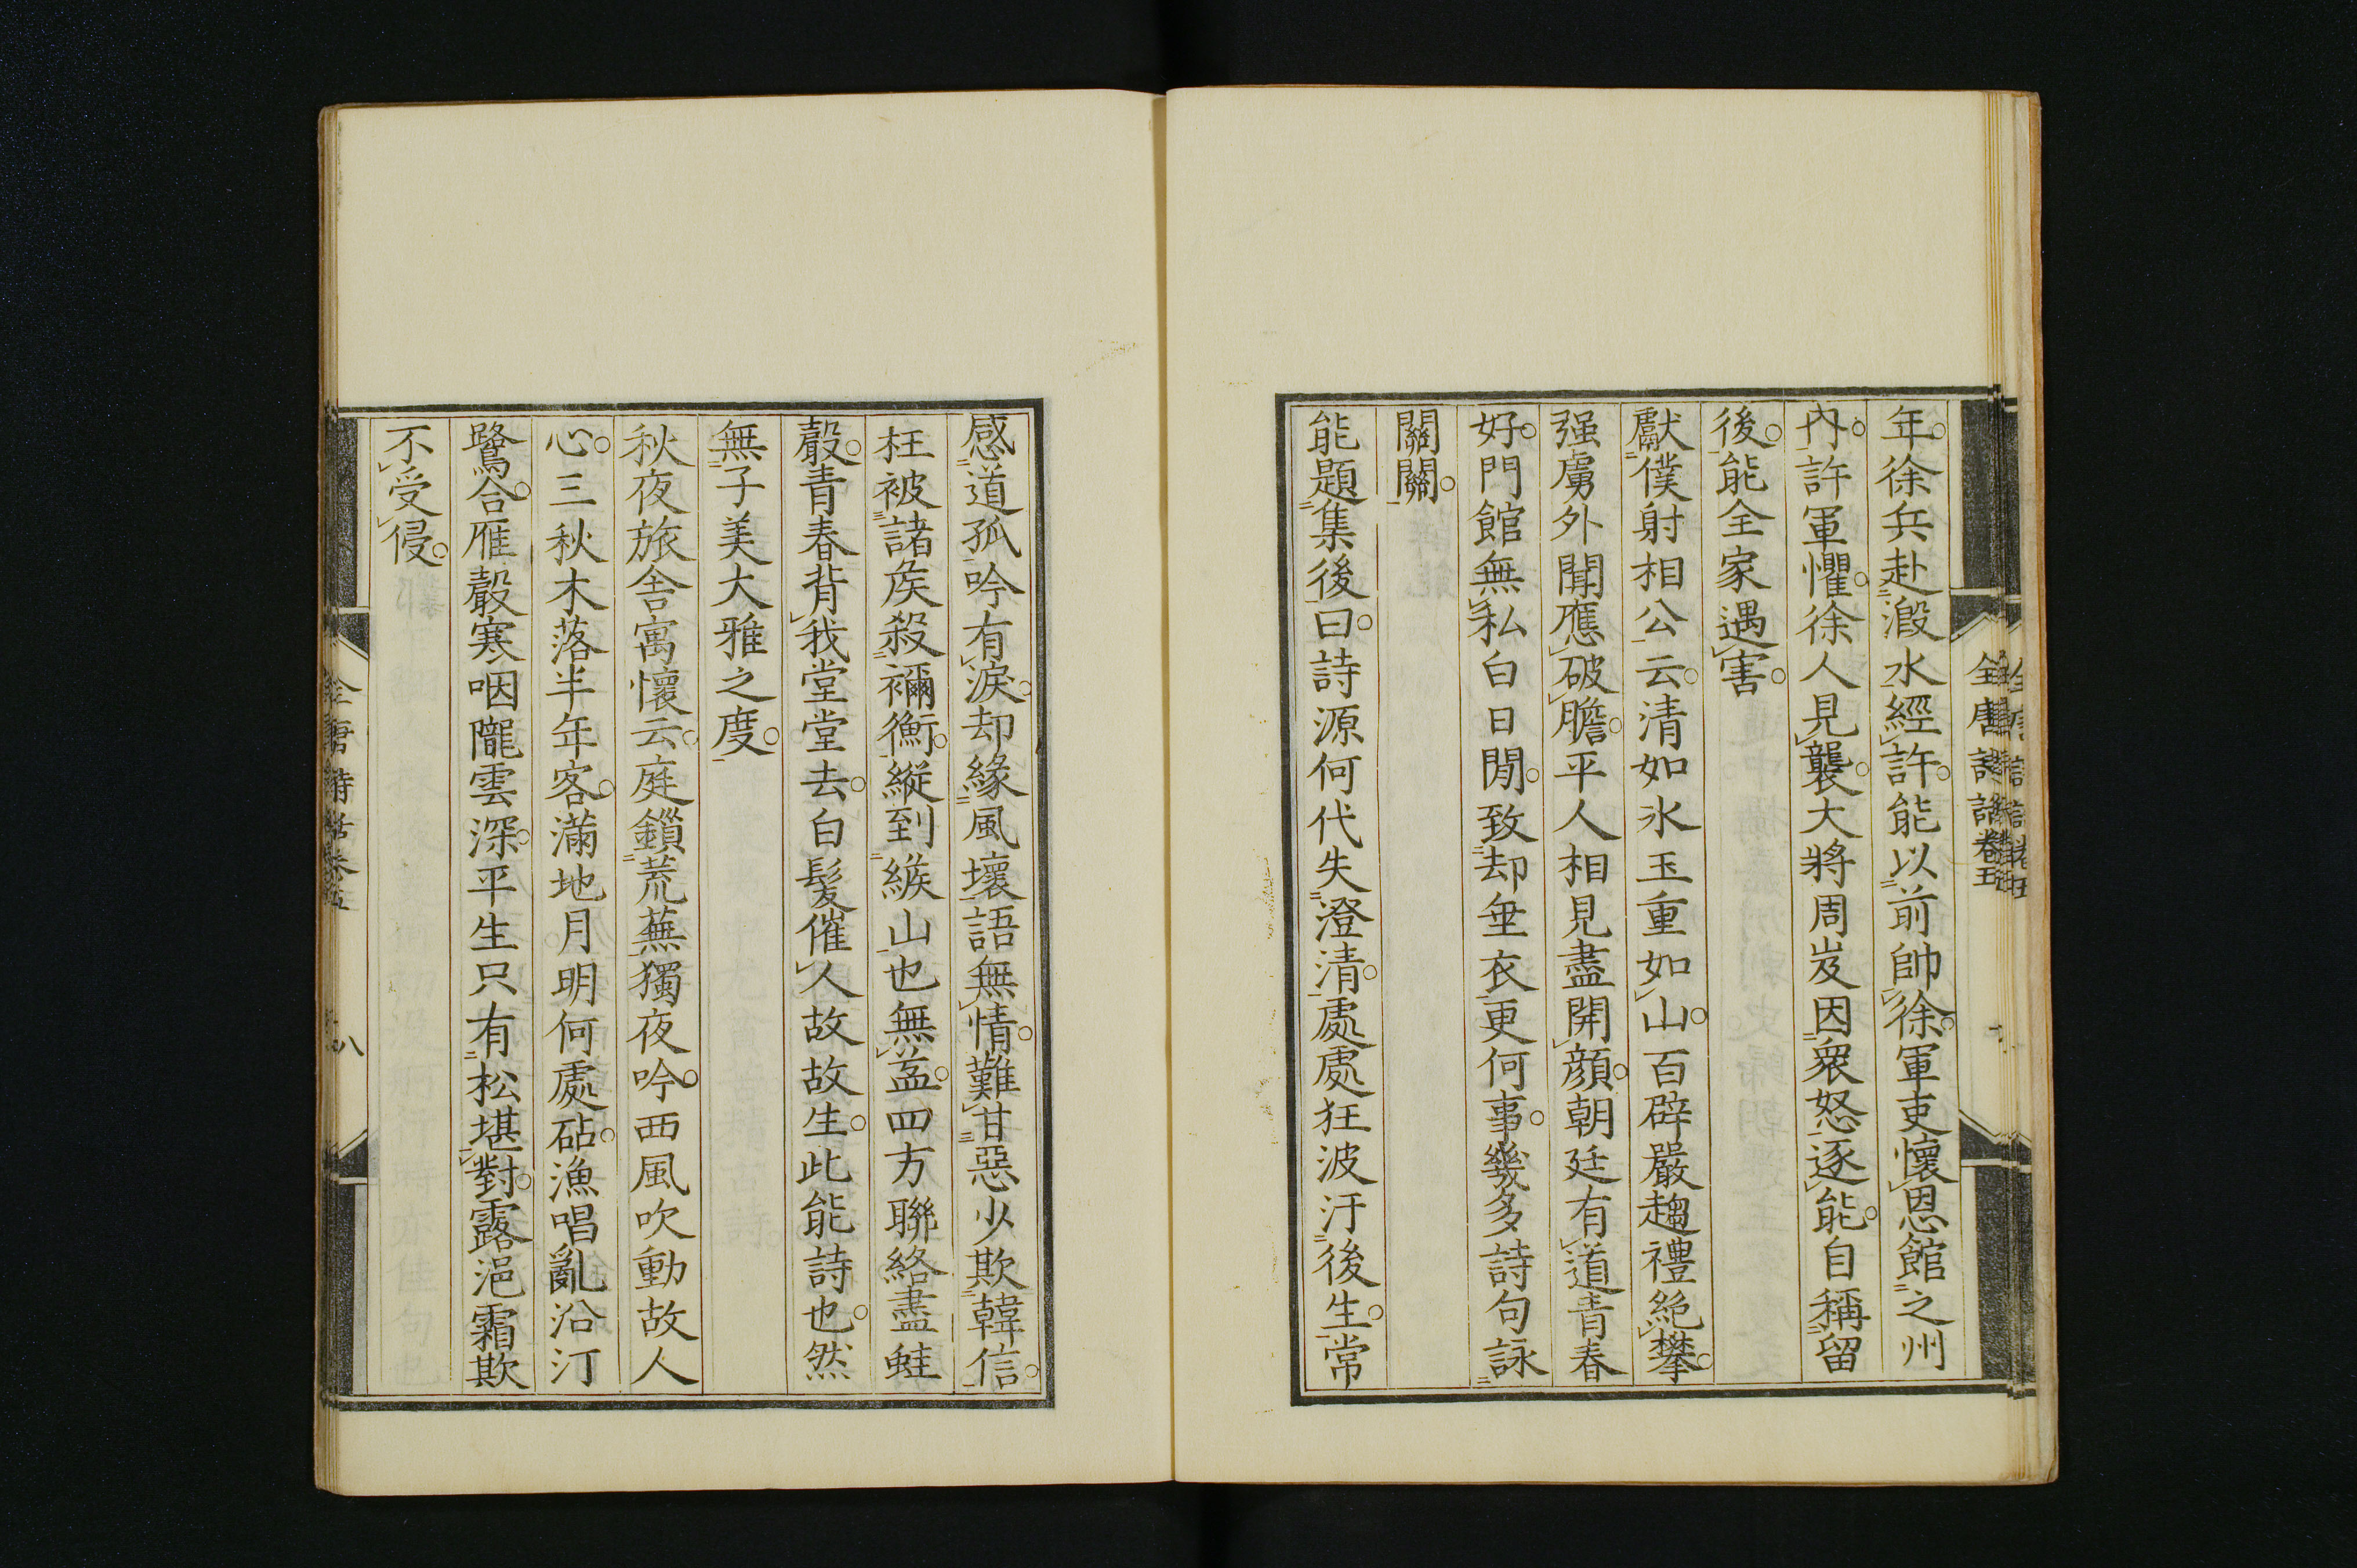 年徐兵赴溵水經許能以前帥徐軍吏懷恩館之州
內許軍懼徐人見襲大將周岌因衆怒逐能自稱留
後能全家遇害
獻僕射相公云清如氷玉重如山百辟嚴趨禮絶攀
强虜外聞應破膽平人相見盡開顔朝廷有道青春
好門館無私白日閒致却垂衣更何事幾多詩句詠
關關
能題集後曰詩源何代失澄清處處狂波汙後生常
感道孤吟有淚却緣風壞語無情難甘惡少欺韓信
枉被諸矦殺禰衡縱到緱山也無益四方聯絡盡蛙
聲青春背我堂堂去白髮催人故故生此能詩也然
無子美大雅之度
秋夜旅舍寓懷云庭鎖荒蕪獨夜吟西風吹動故人
心三秋木落半年客滿地月明何處砧漁唱亂沿汀
鷺合雁聲寒咽隴雲深平生只有松堪對露浥霜欺
不受侵
全唐詩話卷五
八